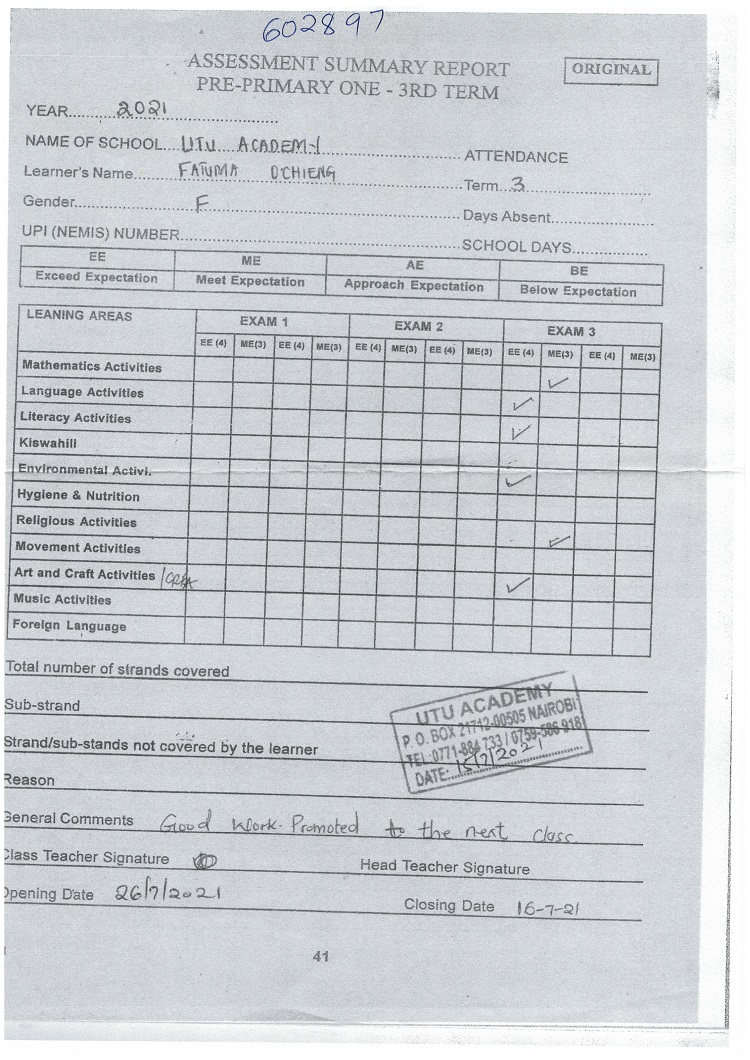 602897
ASSESSMENT SUMMARY REPORT
ORIGINAL
PRE-PRIMARY ONE - 3RD TERM
YEAR 2021
NAME OF SCHOOL UTU ACADEMY ATTENDANCE
Learner's Name FATUMA OCHIENG Term 3
Gender F Days Absent
UPI (NEMIS) NUMBER SCHOOL DAYS
EE ME AE BE
Exceed Expectation Meet Expectation Approach Expectation Below Expectation
LEANING AREAS EXAM 1 EXAM 2 EXAM 3
EE (4) ME(3) EE (4) ME(3) EE (4) ME(3) EE (4) ME(3) EE (4) ME(3) EE (4) ME(3)
Mathematics Activities ✓
Language Activities ✓
Literacy Activities ✓
Kiswahili
Environmental Activi. ✓
Hygiene & Nutrition
Religious Activities
Movement Activities ✓
Art and Craft Activities ✓
Music Activities
Foreign Language
Total number of strands covered
Sub-strand
Strand/sub-stands not covered by the learner
Reason
UTU ACADEMY
P. O. BOX 21712-00505 NAIROBI
TEL:0771-884 733 / 0759-586 918
DATE: 15/7/2021
General Comments Good work. Promoted to the next class.
Class Teacher Signature Head Teacher Signature
Opening Date 26/7/2021 Closing Date 16-7-21
41